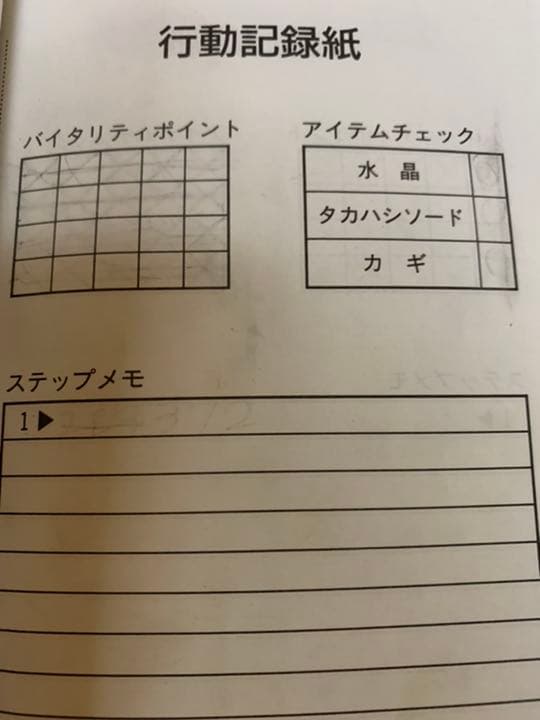 行動記録紙
バイタリティポイント
アイテムチェック
水 晶
タカハシソード
カ ギ
ステップメモ
1▶